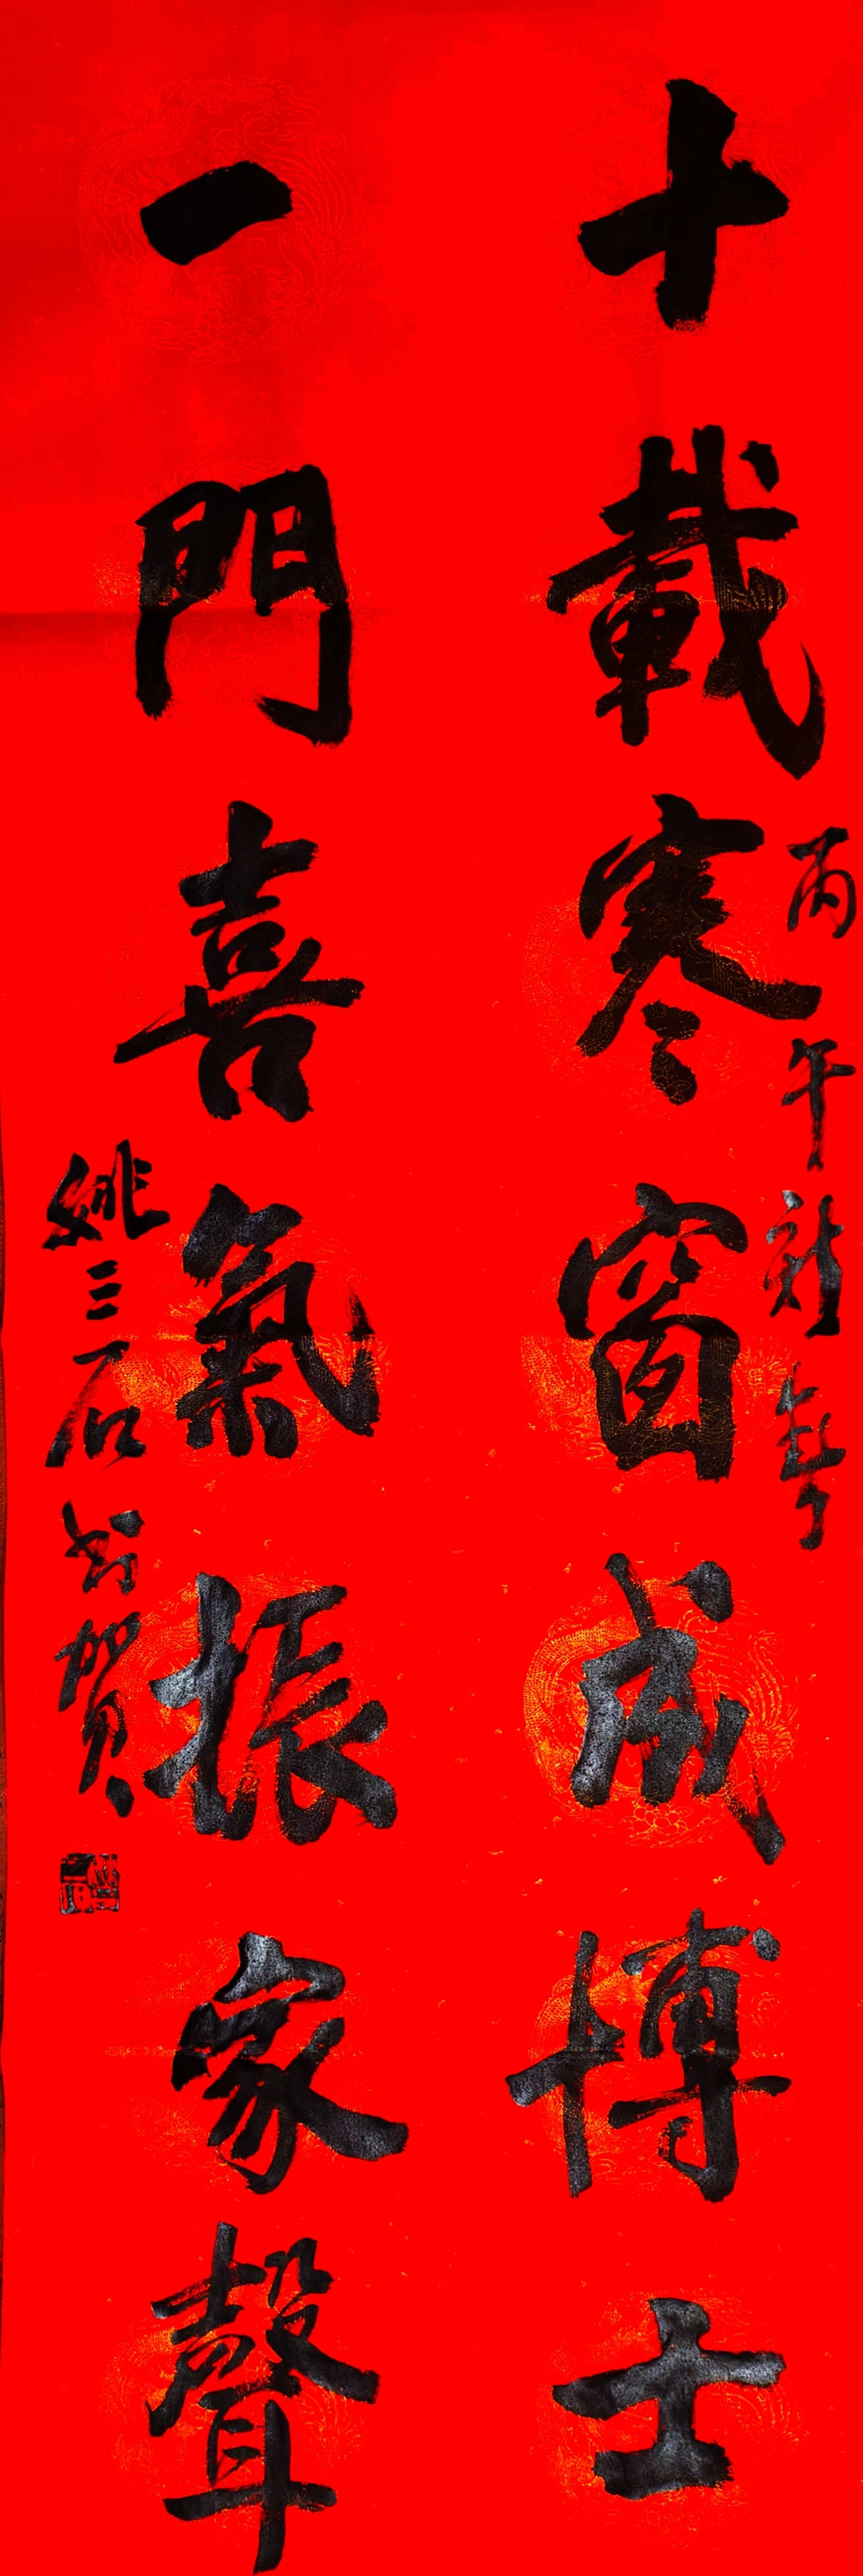 十載寒窗成博士
丙午新春
一門喜氣振家聲
姚三石书賀